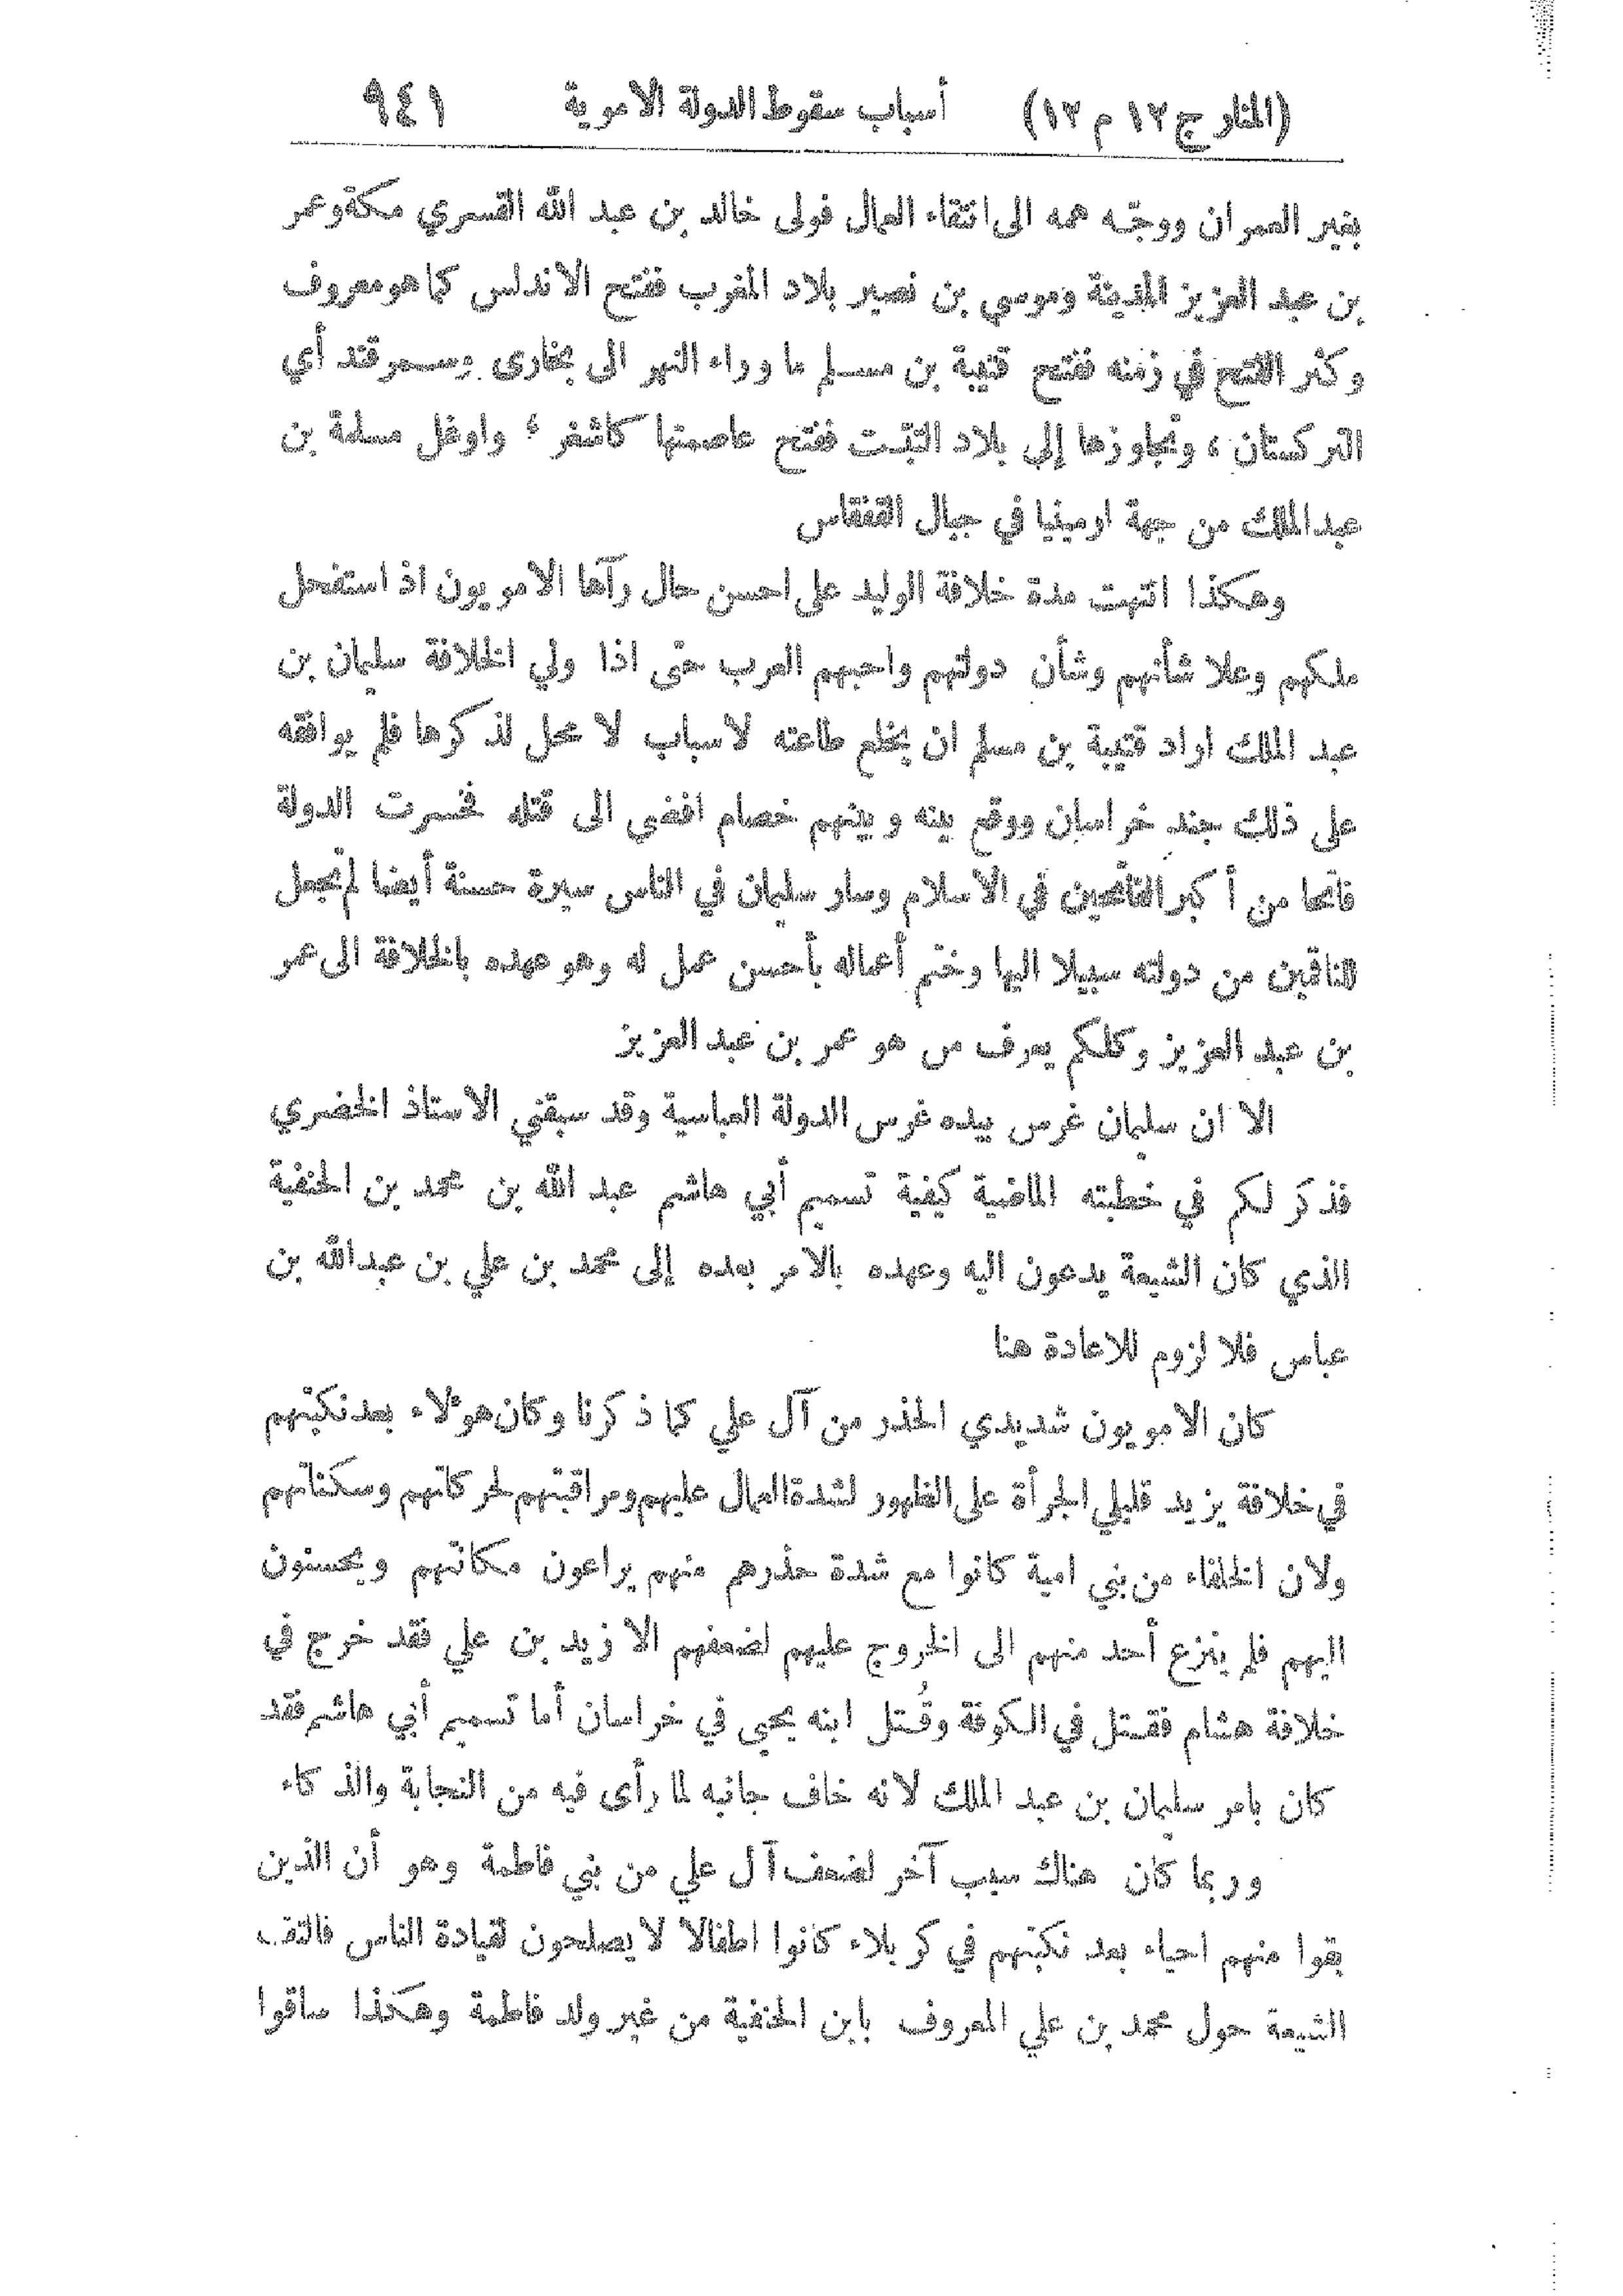 (المنار ج ١٢ م ١٢) أسباب سقوط الدولة الاموية ٩٤١
بغير العمران ووجّه همه الى انتقاء العمال فولى خالد بن عبد الله القسري مكة وعمر
بن عبد العزيز المدينة وموسى بن نصير بلاد المغرب ففتح الاندلس كما هو معروف
وكثر الفتح في زمنه ففتح قتيبة بن مسلم ما وراء النهر الى بخارى وسمرقند أي
التركستان ، وتجاوزها إلى بلاد التبّت ففتح عاصمتها كاشغر ؛ واوغل مسلمة بن
عبد الملك من جهة ارمينيا في جبال القفقاس
وهكذا انتهت مدة خلافة الوليد على احسن حال رآها الامويون اذ استفحل
ملكهم وعلا شأنهم وشأن دولتهم واحبهم العرب حتى اذا ولي الخلافة سليمان بن
عبد الملك اراد قتيبة بن مسلم ان يخلع طاعته لاسباب لا محل لذكرها فلم يوافقه
على ذلك جند خراسان ووقع بينه وبينهم خصام افضى الى قتله فخسرت الدولة
فاتحا من أكبر الفاتحين في الاسلام وسار سليمان في الناس سيرة حسنة أيضا لم تجعل
للناقمين من دولته سبيلا اليها وختم أعماله بأحسن عمل له وهو عهده بالخلافة الى عمر
بن عبد العزيز وكلكم يعرف من هو عمر بن عبد العزيز
الا ان سليمان غرس بيده غرس الدولة العباسية وقد سبقني الاستاذ الخضري
فذكر لكم في خطبته الماضية كيفية تسميم أبي هاشم عبد الله بن محمد بن الحنفية
الذي كان الشيعة يدعون اليه وعهده بالامر بعده إلى محمد بن علي بن عبد الله بن
عباس فلا لزوم للاعادة هنا
كان الامويون شديدي الحذر من آل علي كما ذكرنا وكان هؤلاء بعد نكبتهم
في خلافة يزيد قليلي الجرأة على الظهور لشدة العمال عليهم ومراقبتهم لحركاتهم وسكناتهم
ولان الخلفاء من بني امية كانوا مع شدة حذرهم منهم يراعون مكانتهم ويحسنون
اليهم فلم ينزع أحد منهم الى الخروج عليهم لضعفهم الا زيد بن علي فقد خرج في
خلافة هشام فقتل في الكوفة وقُتل ابنه يحيى في خراسان أما تسميم أبي هاشم فقد
كان بامر سليمان بن عبد الملك لانه خاف جانبه لما رأى فيه من النجابة والذكاء
وربما كان هناك سبب آخر لضعف آل علي من بني فاطمة وهو أن الذين
بقوا منهم احياء بعد نكبتهم في كربلاء كانوا اطفالا لا يصلحون لقيادة الناس فالتف
الشيعة حول محمد بن علي المعروف بابن الحنفية من غير ولد فاطمة وهكذا ساقوا